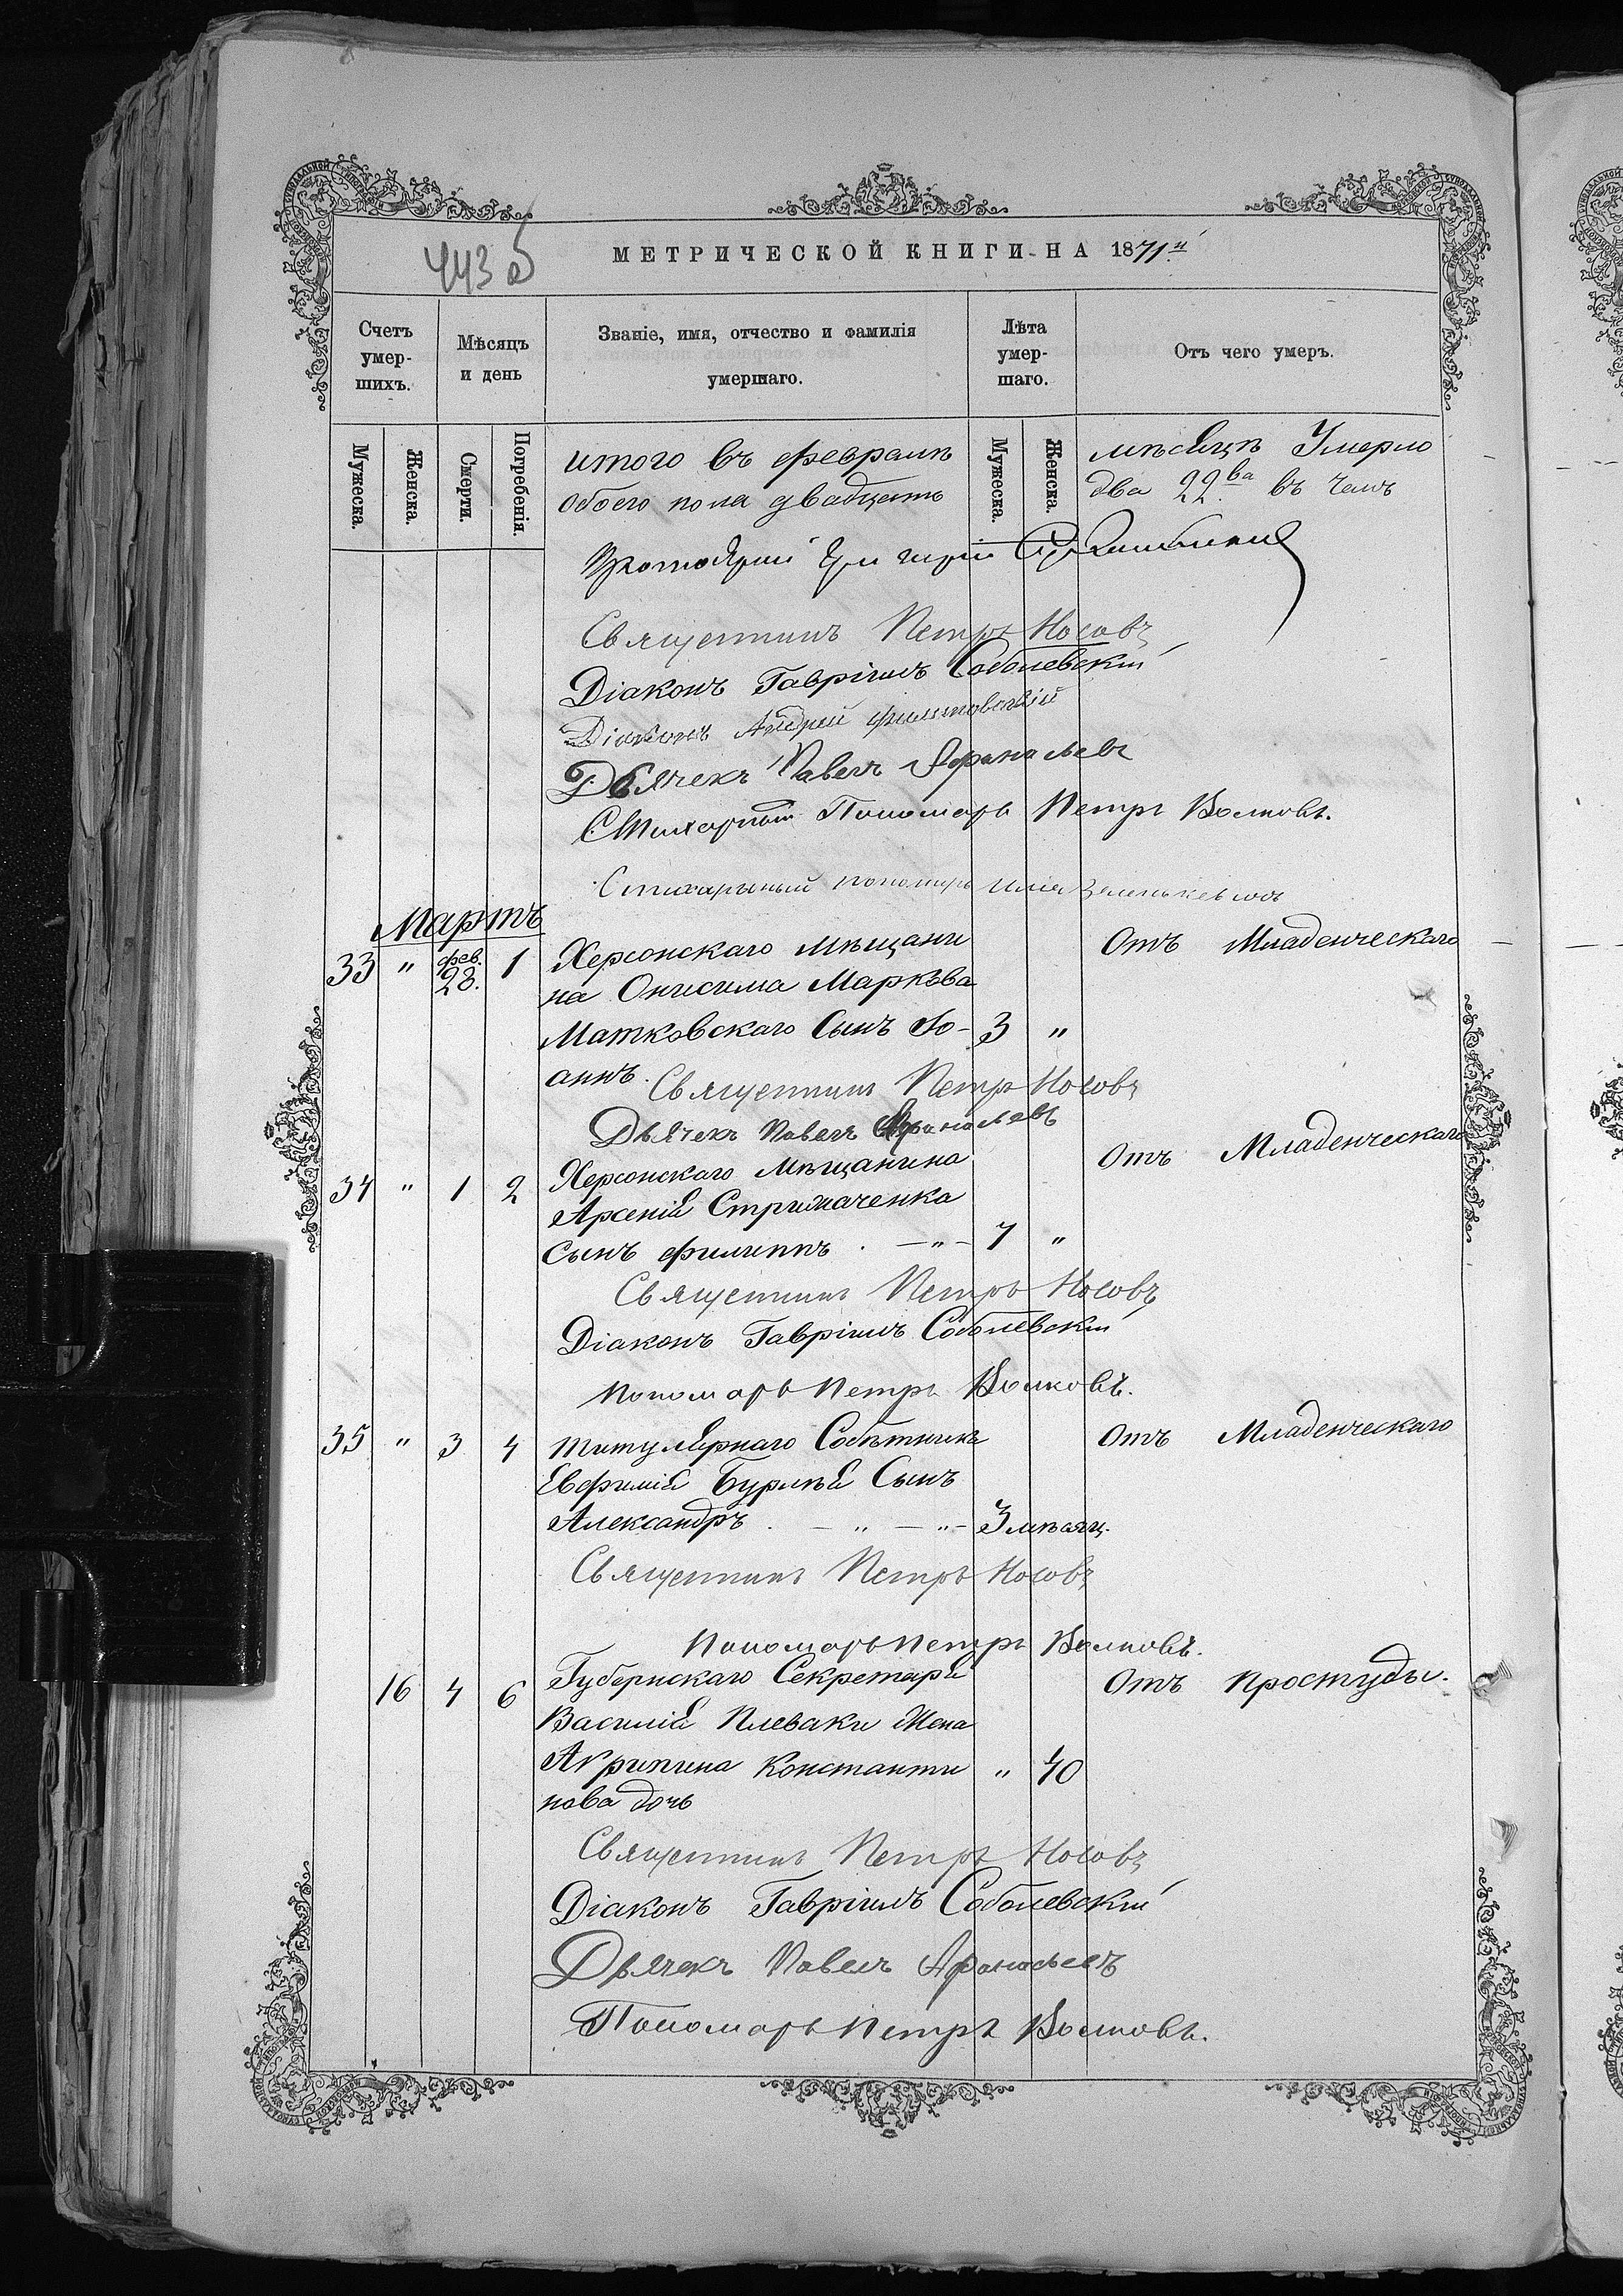 443 об
МЕТРИЧЕСКОЙ КНИГИ НА 1871й
Счетъ умер-шихъ.
Мѣсяцъ и день
Званіе, имя, отчество и фамилія умершаго.
Лѣта умер-шаго.
Отъ чего умеръ.
Мужеска.
Женска.
Смерти.
Погребенія.
Мужеска.
Женска.
итого въ февралѣ мѣсяцѣ Умерло
обоего пола двадцать два 22ва въ чемъ
Протоіерей
Священникъ Петръ Носовъ
Діаконъ Гавріилъ Соболевскій
Діаконъ Андрей
Дьячекъ Павелъ Афанасьевъ
Стихарный Пономарь Петръ Волковъ.
Стихарный пономарь Илія
Мартъ
33 " фев. 28. 1 Херсонскаго мѣщани Отъ Младенческаго
на Онисима Маркѣва
Матковскаго Сынъ Іо- 3 "
аннъ.
Священникъ Петръ Носовъ
Дьячекъ Павелъ Афанасьевъ
34 " 1 2 Херсонскаго мѣщанина Отъ Младенческаго
Арсенія Стримаченка
сынъ филиппъ . — " — 7 "
Священникъ Петръ Носовъ
Діаконъ Гавріилъ Соболевскій
Пономарь Петръ Волковъ.
35 " 3 4 титулярнаго Совѣтника Отъ Младенческаго
Евфимія Бурлѣя Сынъ
Александръ . — " — " — 3 мѣсяц.
Священникъ Петръ Носовъ
Пономарь Петръ Волковъ.
16 4 6 Губернскаго Секретаря Отъ простуды.
Василія Плеваки Жена
Агрипина Константи " 40
нова дочь
Священникъ Петръ Носовъ
Діаконъ Гавріилъ Соболевскій
Дьячекъ Павелъ Афанасьевъ
Пономарь Петръ Волковъ.